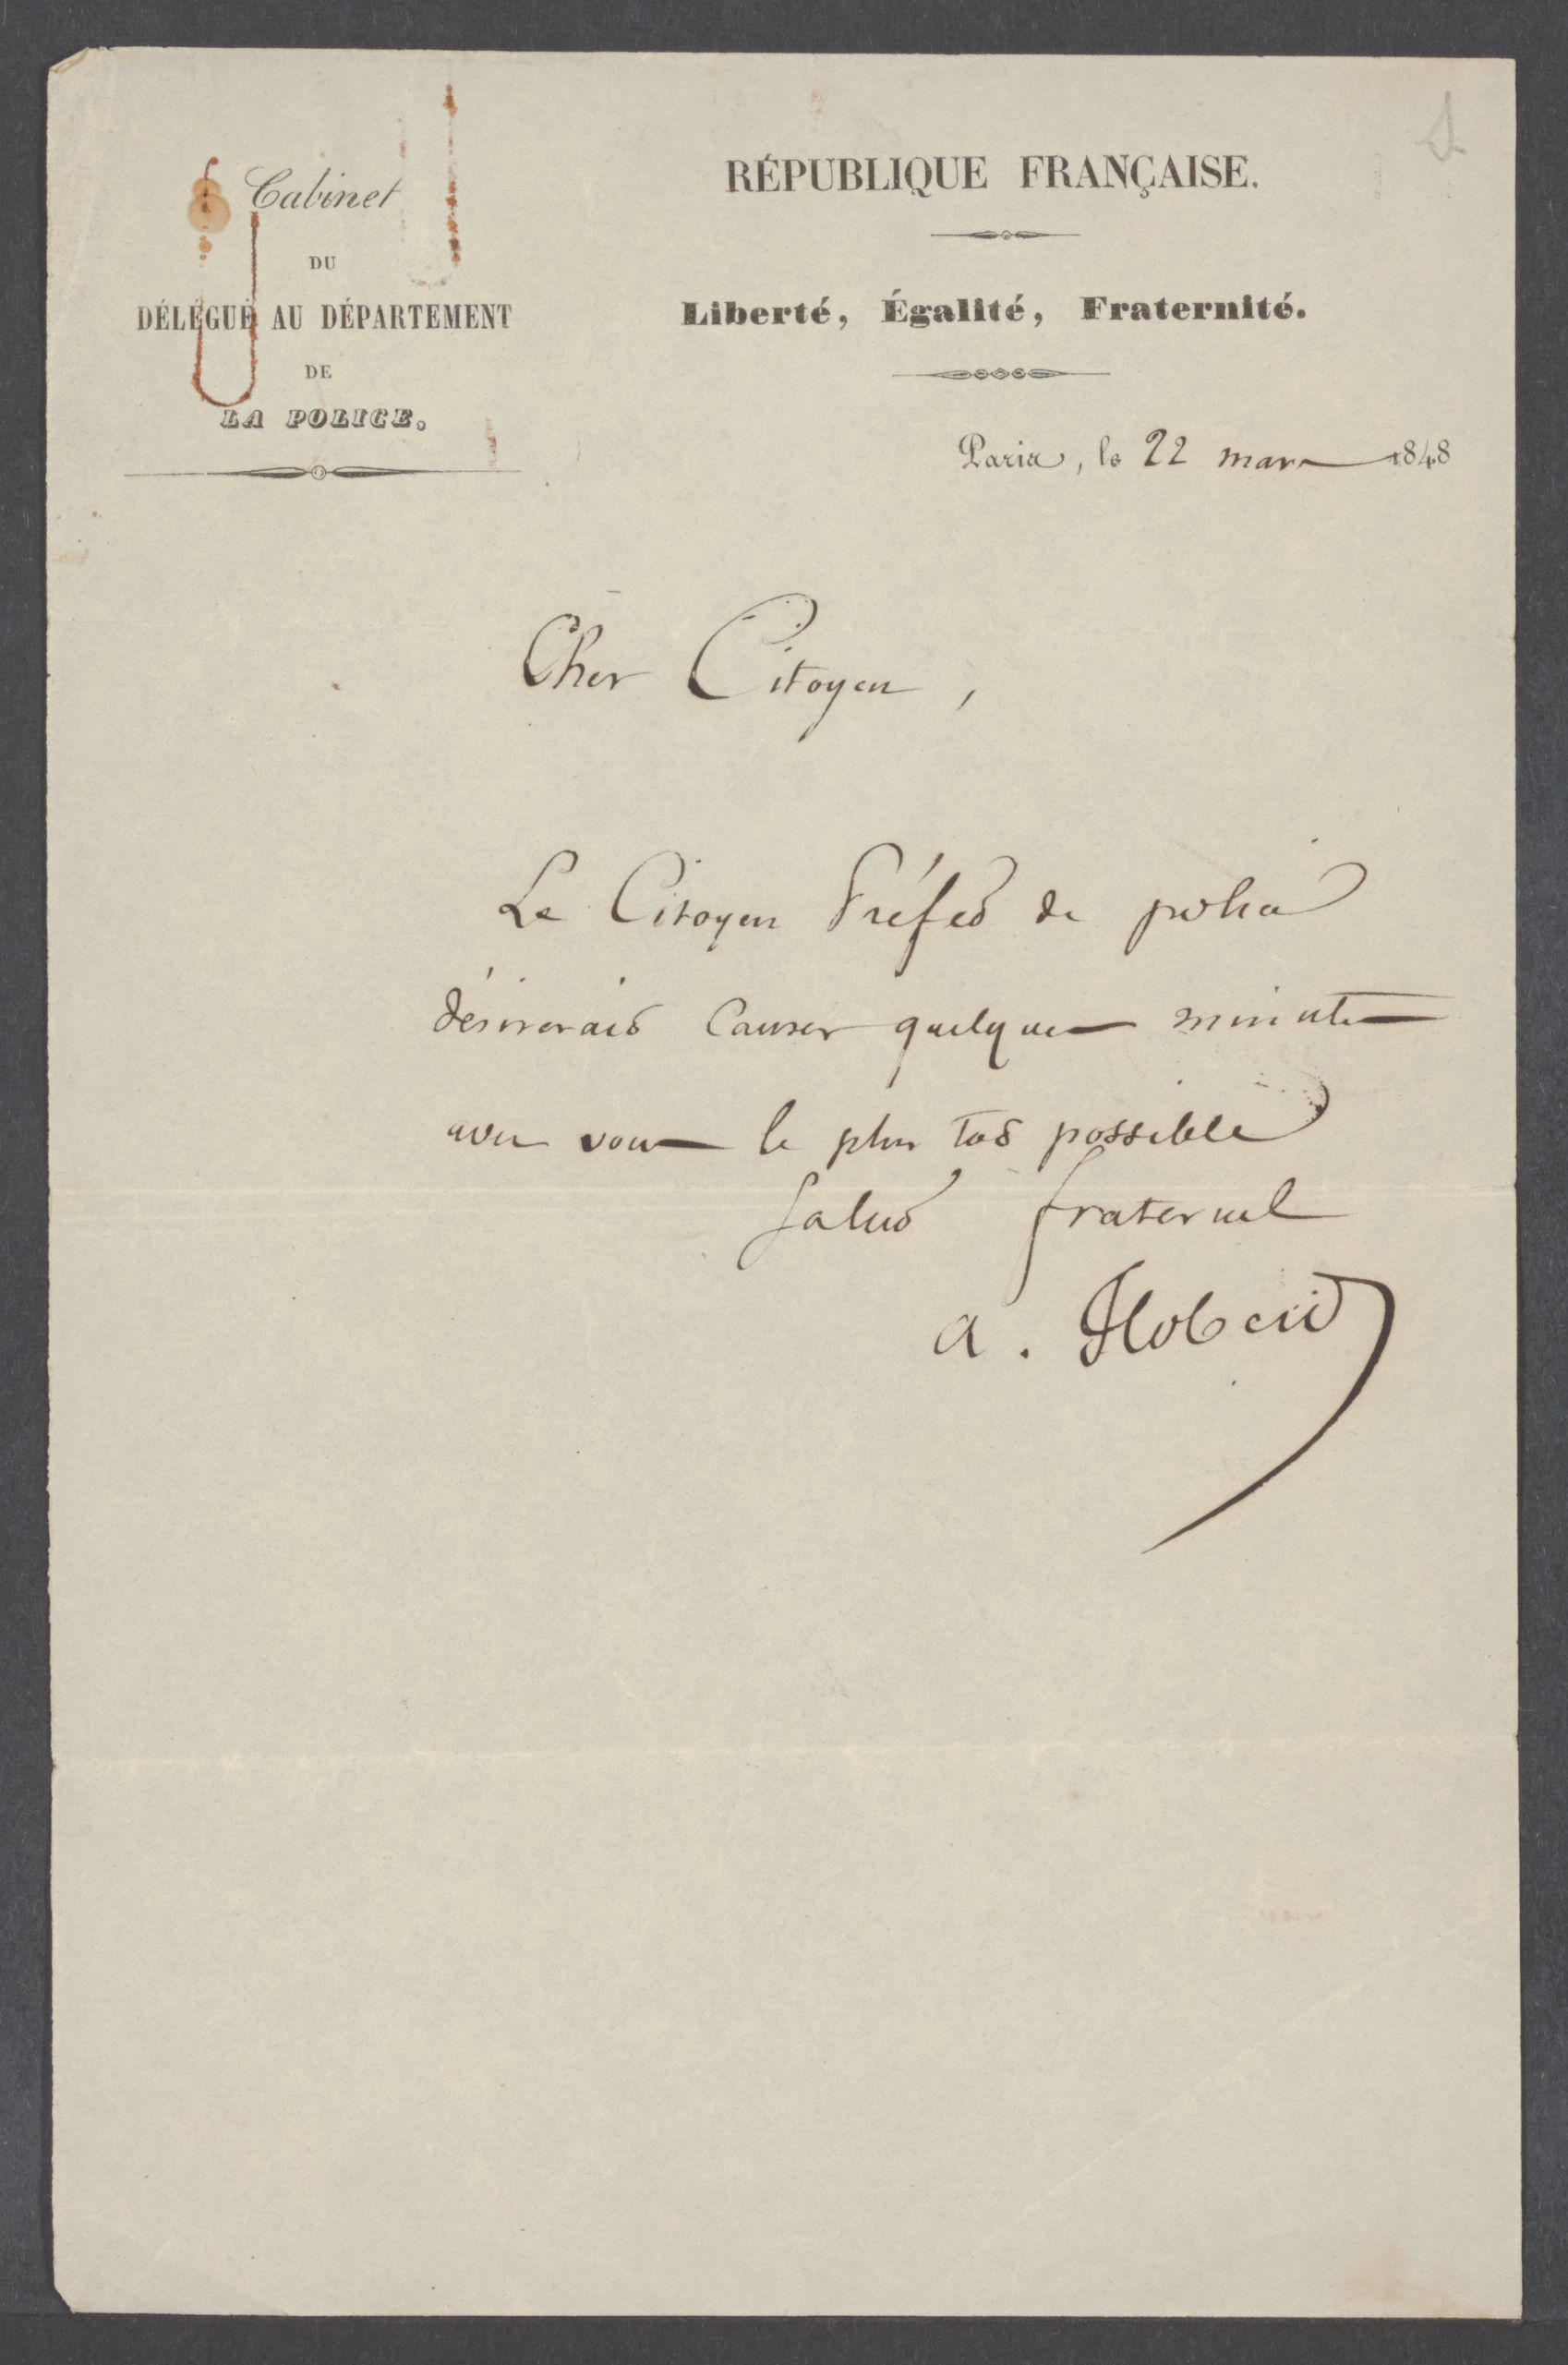 Cabinet
DU
DÉLÉGUÉ AU DÉPARTEMENT
DE
LA POLICE.
RÉPUBLIQUE FRANÇAISE.
Liberté, Égalité, Fraternité.
Paris, le 22 mars 1848
Cher Citoyen,
Le Citoyen Préfet de police
désirerait causer quelques minutes
avec vous le plus tot possible
Salut fraternel
A.